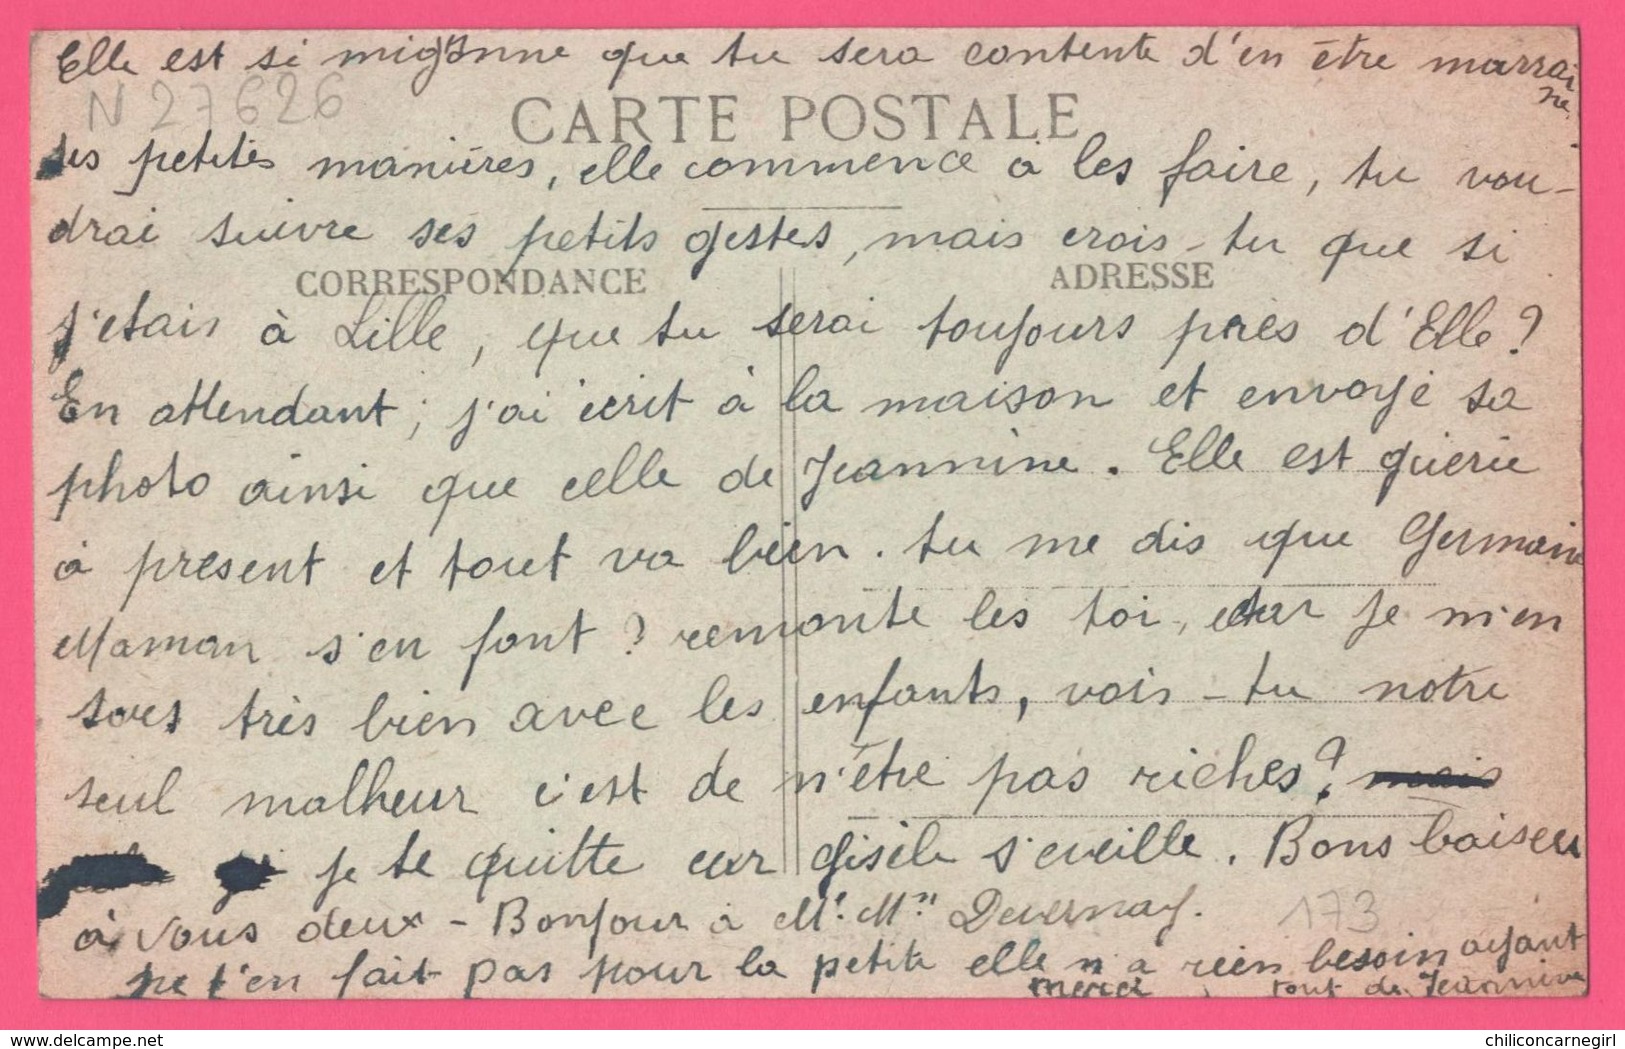 Elle est si mignonne que tu sera contente d'en être marrai
ne
N 27626
CARTE POSTALE
ses petites manières, elle commence à les faire, tu vou-
drai suivre ses petits gestes, mais crois-tu que si
CORRESPONDANCE ADRESSE
j'etais à Lille, que tu serai toujours près d'Elle?
En attendant, j'ai écrit à la maison et envoyé sa
photo ainsi que celle de Jeannine. Elle est guérie
à présent et tout va bien. tu me dis que Germaine
Maman s'en font? remonte les toi, car je m'en
sors très bien avec les enfants, vois-tu notre
seul malheur c'est de n'être pas riches? mais
je te quitte car gisèle s'eveille. Bons baisers
à vous deux - Bonjour à Mr. Mme Devernay.
173
ne t'en fait pas pour la petite elle n'a rien besoin ayant
merci tout de Jeannine
www.delcampe.net chiliconcarnegirl